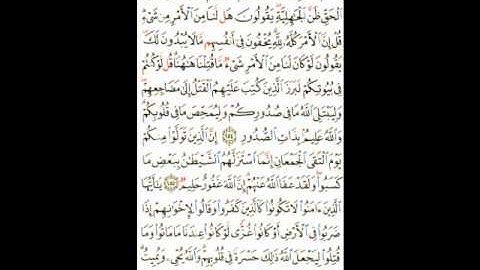 ٱلْحَقِّ ظَنَّ ٱلْجَٰهِلِيَّةِ ۖ يَقُولُونَ هَل لَّنَا مِنَ ٱلْأَمْرِ مِن شَىْءٍ ۗ
قُلْ إِنَّ ٱلْأَمْرَ كُلَّهُۥ لِلَّهِ ۗ يُخْفُونَ فِىٓ أَنفُسِهِم مَّا لَا يُبْدُونَ لَكَ ۖ
يَقُولُونَ لَوْ كَانَ لَنَا مِنَ ٱلْأَمْرِ شَىْءٌ مَّا قُتِلْنَا هَٰهُنَا ۗ قُل لَّوْ كُنتُمْ
فِى بُيُوتِكُمْ لَبَرَزَ ٱلَّذِينَ كُتِبَ عَلَيْهِمُ ٱلْقَتْلُ إِلَىٰ مَضَاجِعِهِمْ ۖ
وَلِيَبْتَلِىَ ٱللَّهُ مَا فِى صُدُورِكُمْ وَلِيُمَحِّصَ مَا فِى قُلُوبِكُمْ ۗ
وَٱللَّهُ عَلِيمٌۢ بِذَاتِ ٱلصُّدُورِ ۝١٥٤ إِنَّ ٱلَّذِينَ تَوَلَّوْا۟ مِنكُمْ
يَوْمَ ٱلْتَقَى ٱلْجَمْعَانِ إِنَّمَا ٱسْتَزَلَّهُمُ ٱلشَّيْطَٰنُ بِبَعْضِ مَا
كَسَبُوا۟ ۖ وَلَقَدْ عَفَا ٱللَّهُ عَنْهُمْ ۗ إِنَّ ٱللَّهَ غَفُورٌ حَلِيمٌ ۝١٥٥ يَٰٓأَيُّهَا
ٱلَّذِينَ ءَامَنُوا۟ لَا تَكُونُوا۟ كَٱلَّذِينَ كَفَرُوا۟ وَقَالُوا۟ لِإِخْوَٰنِهِمْ إِذَا
ضَرَبُوا۟ فِى ٱلْأَرْضِ أَوْ كَانُوا۟ غُزًّى لَّوْ كَانُوا۟ عِندَنَا مَا مَاتُوا۟ وَمَا
قُتِلُوا۟ لِيَجْعَلَ ٱللَّهُ ذَٰلِكَ حَسْرَةً فِى قُلُوبِهِمْ ۗ وَٱللَّهُ يُحْىِۦ وَيُمِيتُ ۗ